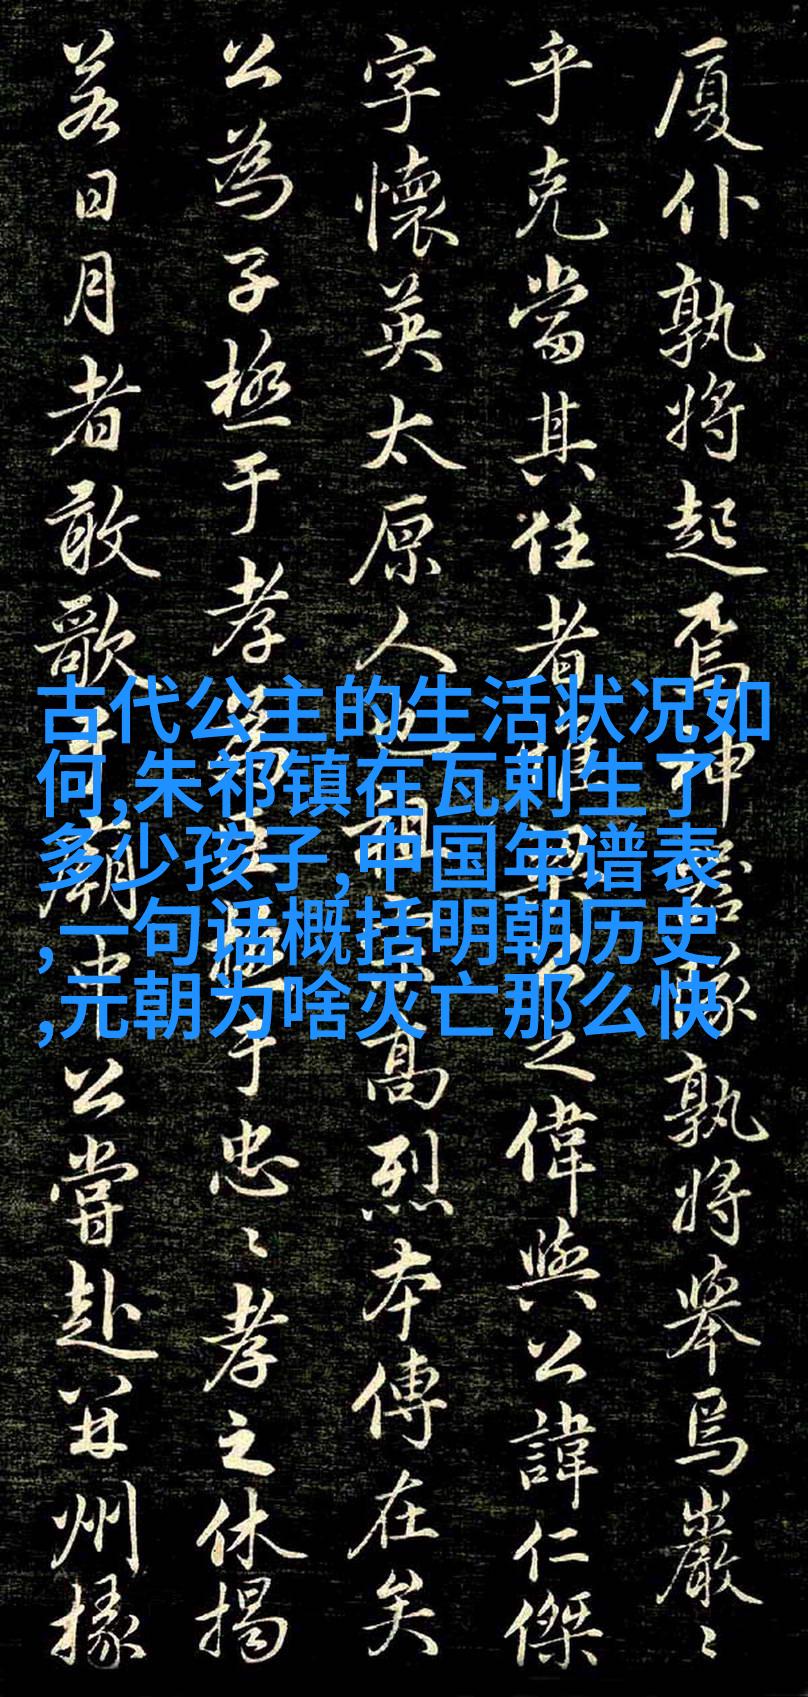 厦仆孰將起焉神器孰將舉焉巖〻
乎克當其任者惟梁公之偉與公諱仁傑
字懷英太原人也祖宗高烈本傳在矣
公為子極于孝為臣極于忠〻孝之休揭
若日月者敢歌于廟中公嘗赴并州掾
古代公主的生活状况如
何,朱祁镇在瓦剌生了
多少孩子,中国年谱表
,一句话概括明朝历史
,元朝为啥灭亡那么快